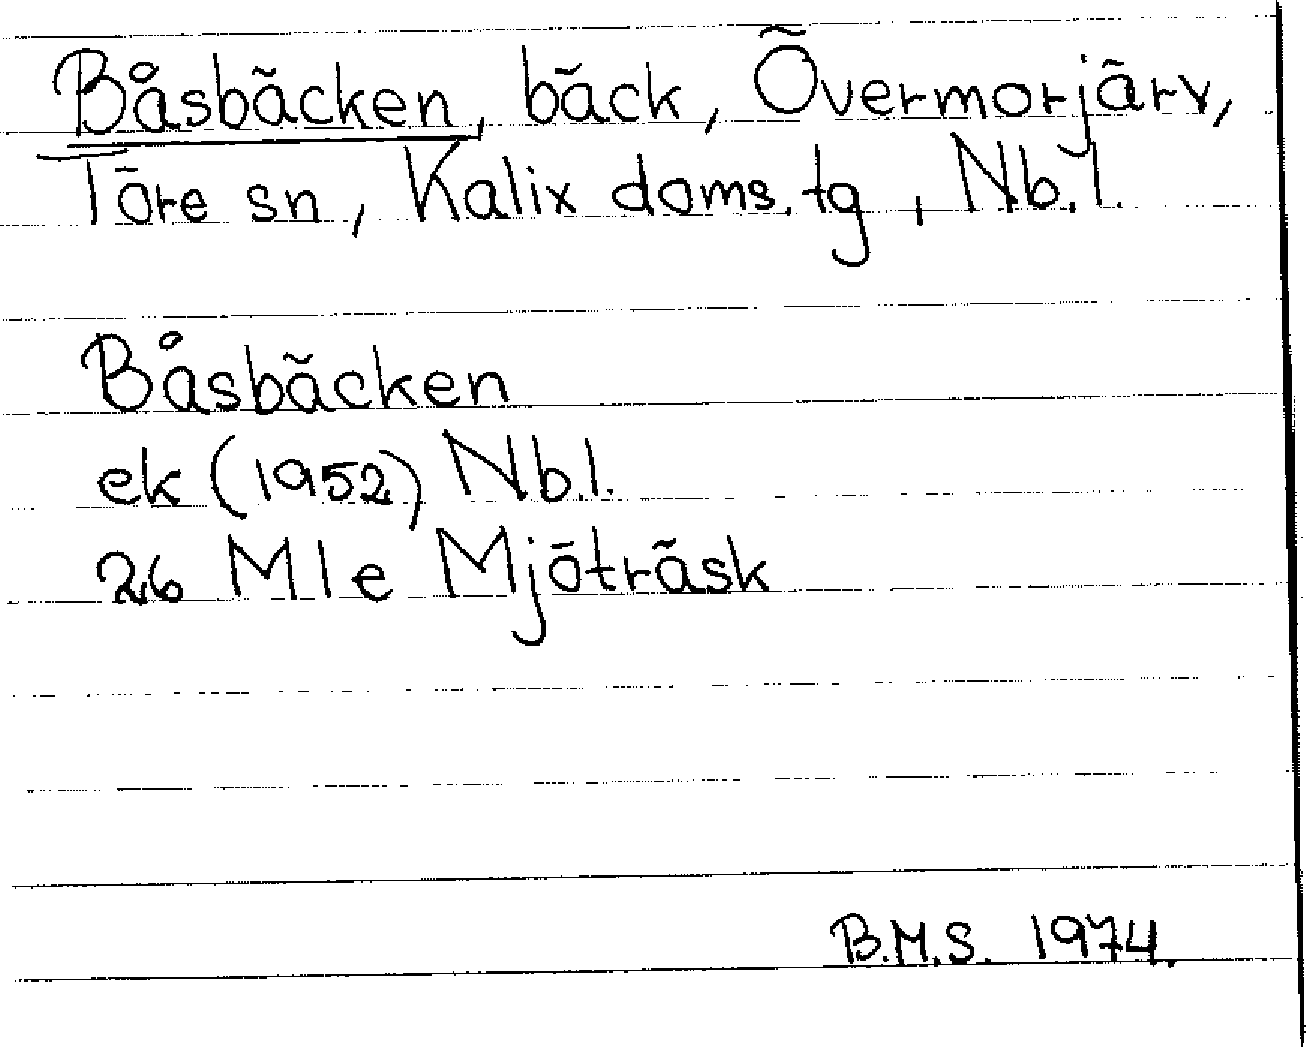 Båsbäcken, bäck, Övermorjärv,
Töre sn, Kalix doms.tg, Nb.l.
Båsbäcken
ek (1952) Nb.l.
26 M 1e Mjöträsk
B.M.S. 1974.